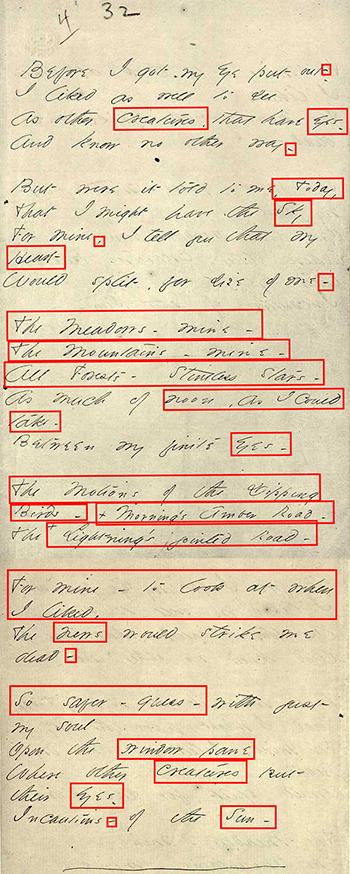 4 32
Before I got my Eye put out
I liked as well to see
As other Creatures, that have Eyes
And know no other way.
But were it told to me, Today,
That I might have the Sky
For mine, I tell you that my
Heart
Would split, for size of me -
The Meadows - mine -
The Mountains - mine -
All Forests - Stintless Stars -
As much of noon, as I could
take -
Between my finite Eyes -
The Motions of the Dipping
Birds - + Morning's Amber Road -
The + Lightning's jointed Road -
For mine - to look at when
I liked,
The news would strike me
dead -
So safer - guess - with just
my soul
Upon the window pane
Where other Creatures put
their Eyes,
Incautious - of the Sun -